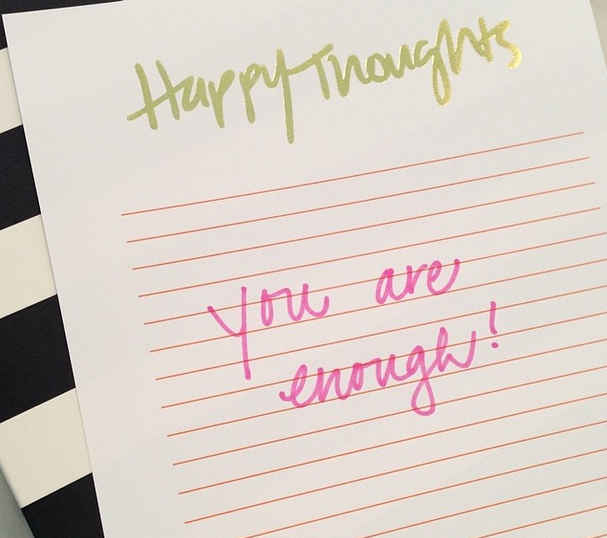 Happy Thoughts
You are
enough!